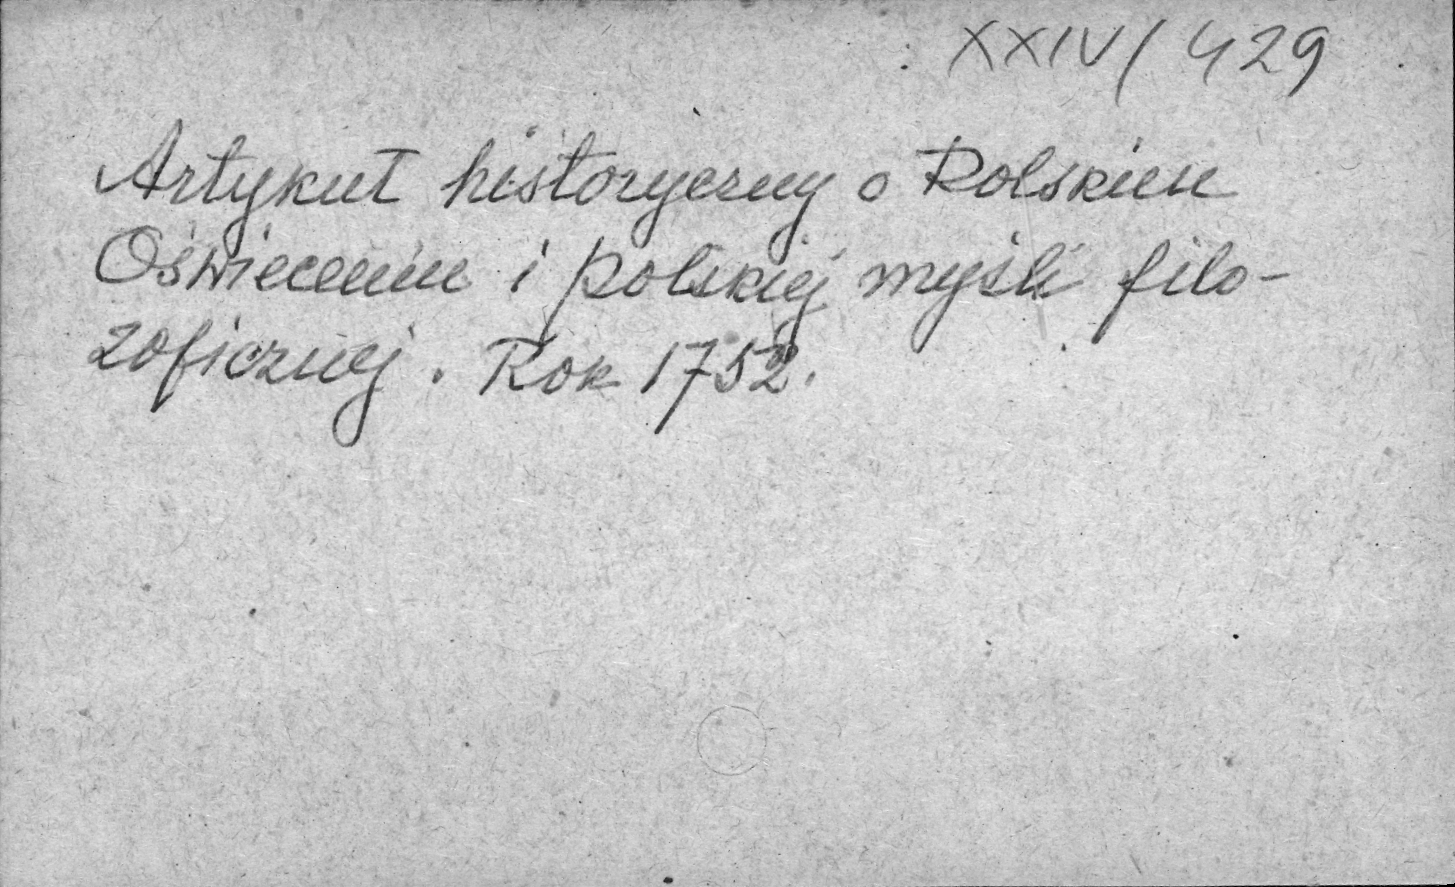 XXIV/429
Artykuł historyczny o Polskim
Oświeceniu i polskiej myśli filo-
zoficznej. Rok 1752.